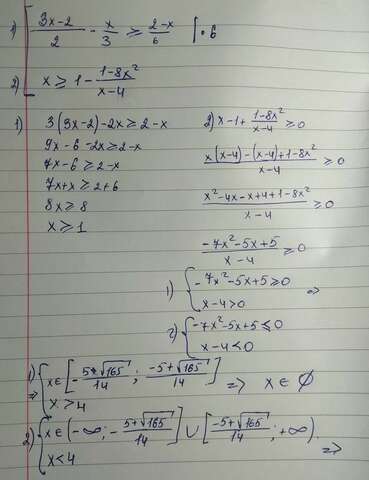 1) [ (3x-2)/2 - x/3 ≥ (2-x)/6 | • 6
2) x ≥ 1 - (1-8x²)/(x-4)
1) 3(3x-2)-2x ≥ 2-x
9x-6-2x ≥ 2-x
7x-6 ≥ 2-x
7x+x ≥ 2+6
8x ≥ 8
x ≥ 1
2) x-1+ (1-8x²)/(x-4) ≥ 0
(x(x-4)-(x-4)+1-8x²)/(x-4) ≥ 0
(x²-4x-x+4+1-8x²)/(x-4) ≥ 0
(-7x²-5x+5)/(x-4) ≥ 0
1) { -7x²-5x+5 ≥ 0
x-4 > 0 =>
2) { -7x²-5x+5 ≤ 0
x-4 < 0
1) => { x ∈ [ - (5+√165)/14 ; (-5+√165)/14 ]
x > 4 => x ∈ ∅
2) { x ∈ (-∞; - (5+√165)/14 ] ∪ [ (-5+√165)/14 ; +∞)
x < 4 =>